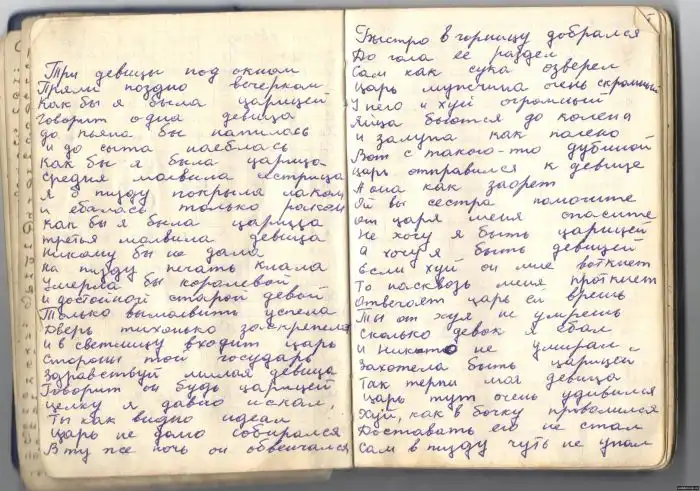 Три девицы под окном
Пряли поздно вечерком
Как бы я была царицей
Говорит одна девица
до пьяна бы напилась
и до сыта наеблась
Как бы я была царица
Средня молвила сестрица
Я б пизду покрыла лаком
и ебалась только раком
Как бы я была царица
третья молвила девица
Никому бы не дала
На пизду печать клала
Умерла бы королевой
и достойной старой девой
Только вымолвить успела
Дверь тихонько заскрепела
и в светлицу входит царь
Стороны той государь
Здравствуй милая девица
Говорит он будь царицей
Целку я давно искал,
Ты как видно идеал
Царь не долго собирался
В ту же ночь он обвенчался
Быстро в горницу добрался
До гола ее раздел
Сам как сука озверел
Царь мужчина очень скромный
У него и хуй огромный
Яйца бьются до колена
и залупа как полено
Вот с такого-то дубиной
царь отправился к девице
А она как заорет
Ой вы сестра помогите
от царя меня спасите
Не хочу я быть царицей
а хочу я быть девицей
Если хуй он мне воткнет
То насквозь меня проткнет
Отвечает царь ей врешь
Ты от хуя не умрешь
Сколько девок я ебал
и никто не умирал
Захотела быть царицей
Так терпи моя девица
Царь тут очень удивился
Хуй, как в бочку провалился
Доставать его не стал
Сам в пизду чуть не упал